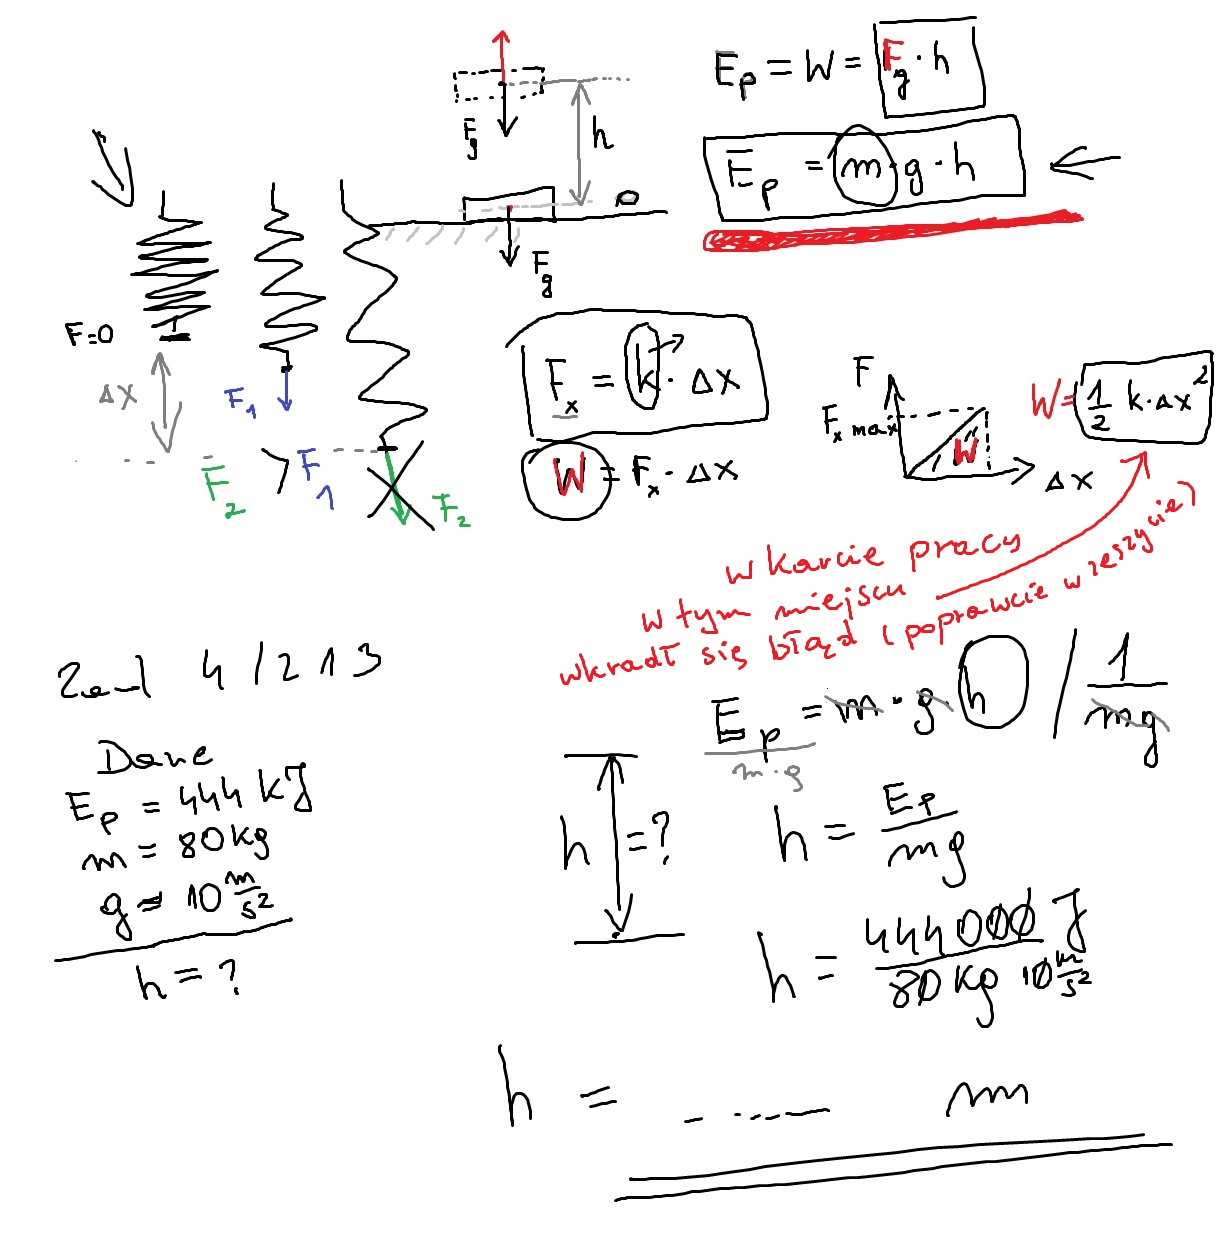 E_p = W = F_g · h
E_p = m · g · h
F_g
h
0
F_g
F=0
Δx
F_1
F_2 > F_1
F_2
F_x = k · Δx
W = F_x · Δx
F
F_x max
W
Δx
W = 1/2 k·Δx²
w karcie pracy
w tym miejscu
wkradł się błąd (poprawcie w zeszycie)
Zad 4/213
Dane
E_p = 444 kJ
m = 80 kg
g = 10 m/s²
h = ?
h = ?
E_p = m · g · h / 1/mg
m·g
h = E_p/mg
h = 444 000 J / 80 kg 10 m/s²
h = ...... m